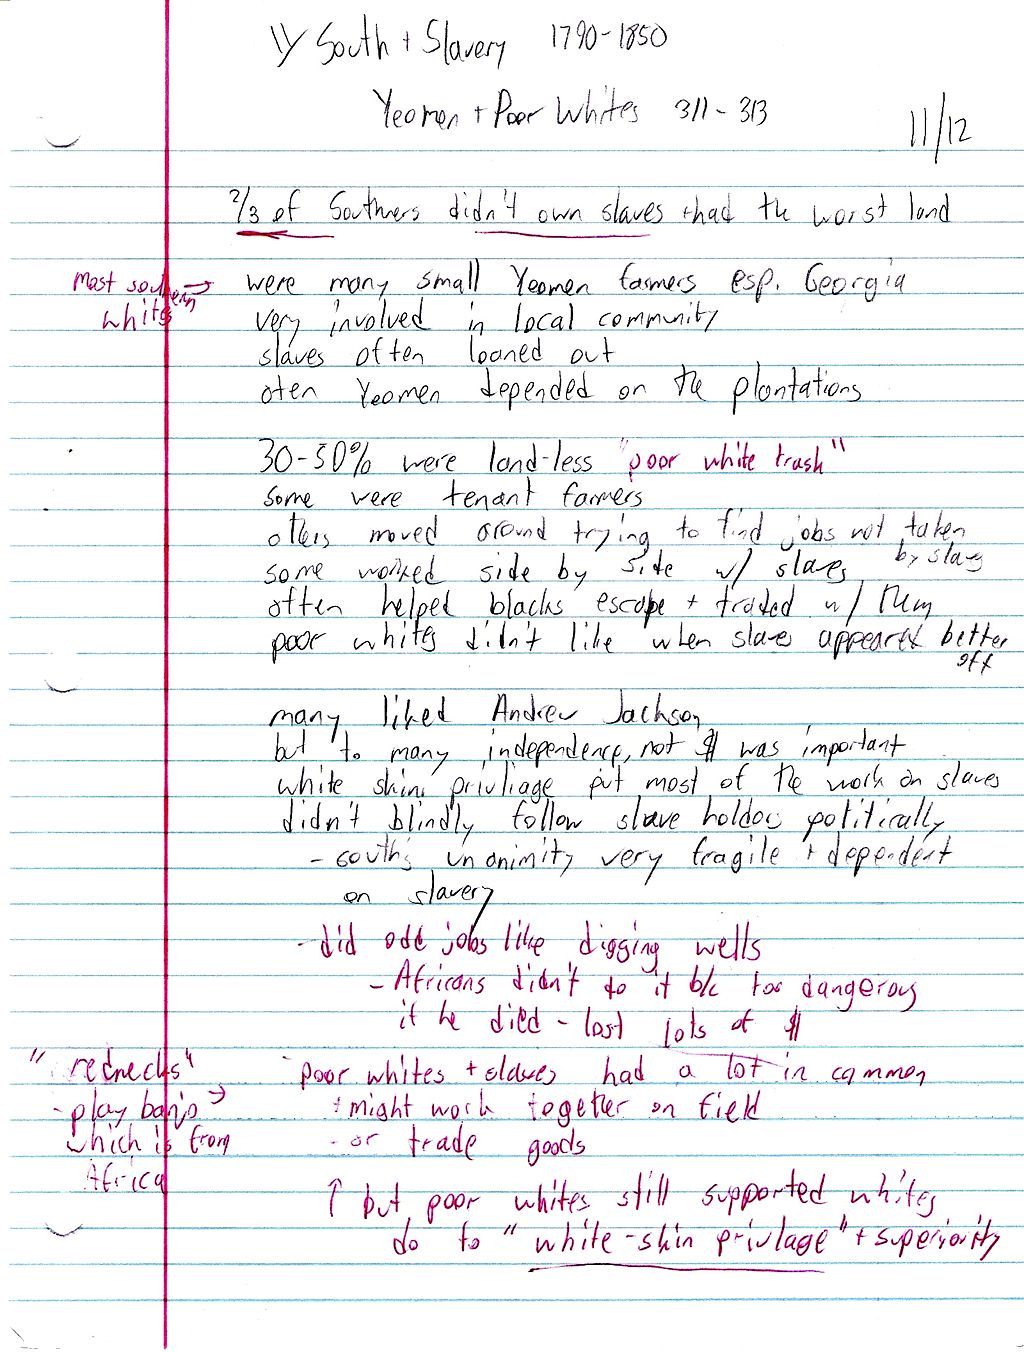 South + Slavery 1790-1850
Yeomen + Poor Whites 311-313
11/12
2/3 of Southners didn't own slaves + had the worst land
most southern whites → were many small Yeomen farmers esp. Georgia
very involved in local community
slaves often loaned out
oten Yeomen depended on the plantations
30-50% were land-less "poor white trash"
some were tenant farmers
others moved around trying to find jobs not taken by slaves
some worked side by side w/ slaves
often helped blacks escape + traded w/ them
poor whites didn't like when slaves appeared better off
many liked Andrew Jackson
but to many independence, not $ was important
white skin privliage put most of the work on slaves
didn't blindly follow slave holders politically
- south's unanimity very fragile + dependent
on slavery
- did odd jobs like digging wells
- Africans didn't do it b/c too dangerous
if he died - lost lots of $
"rednecks"
- play banjo →
which is from
Africa
- poor whites + slaves had a lot in common
+ might work together on field
- or trade goods
↑ but poor whites still supported whites
do to "white-skin privlage" + superiority